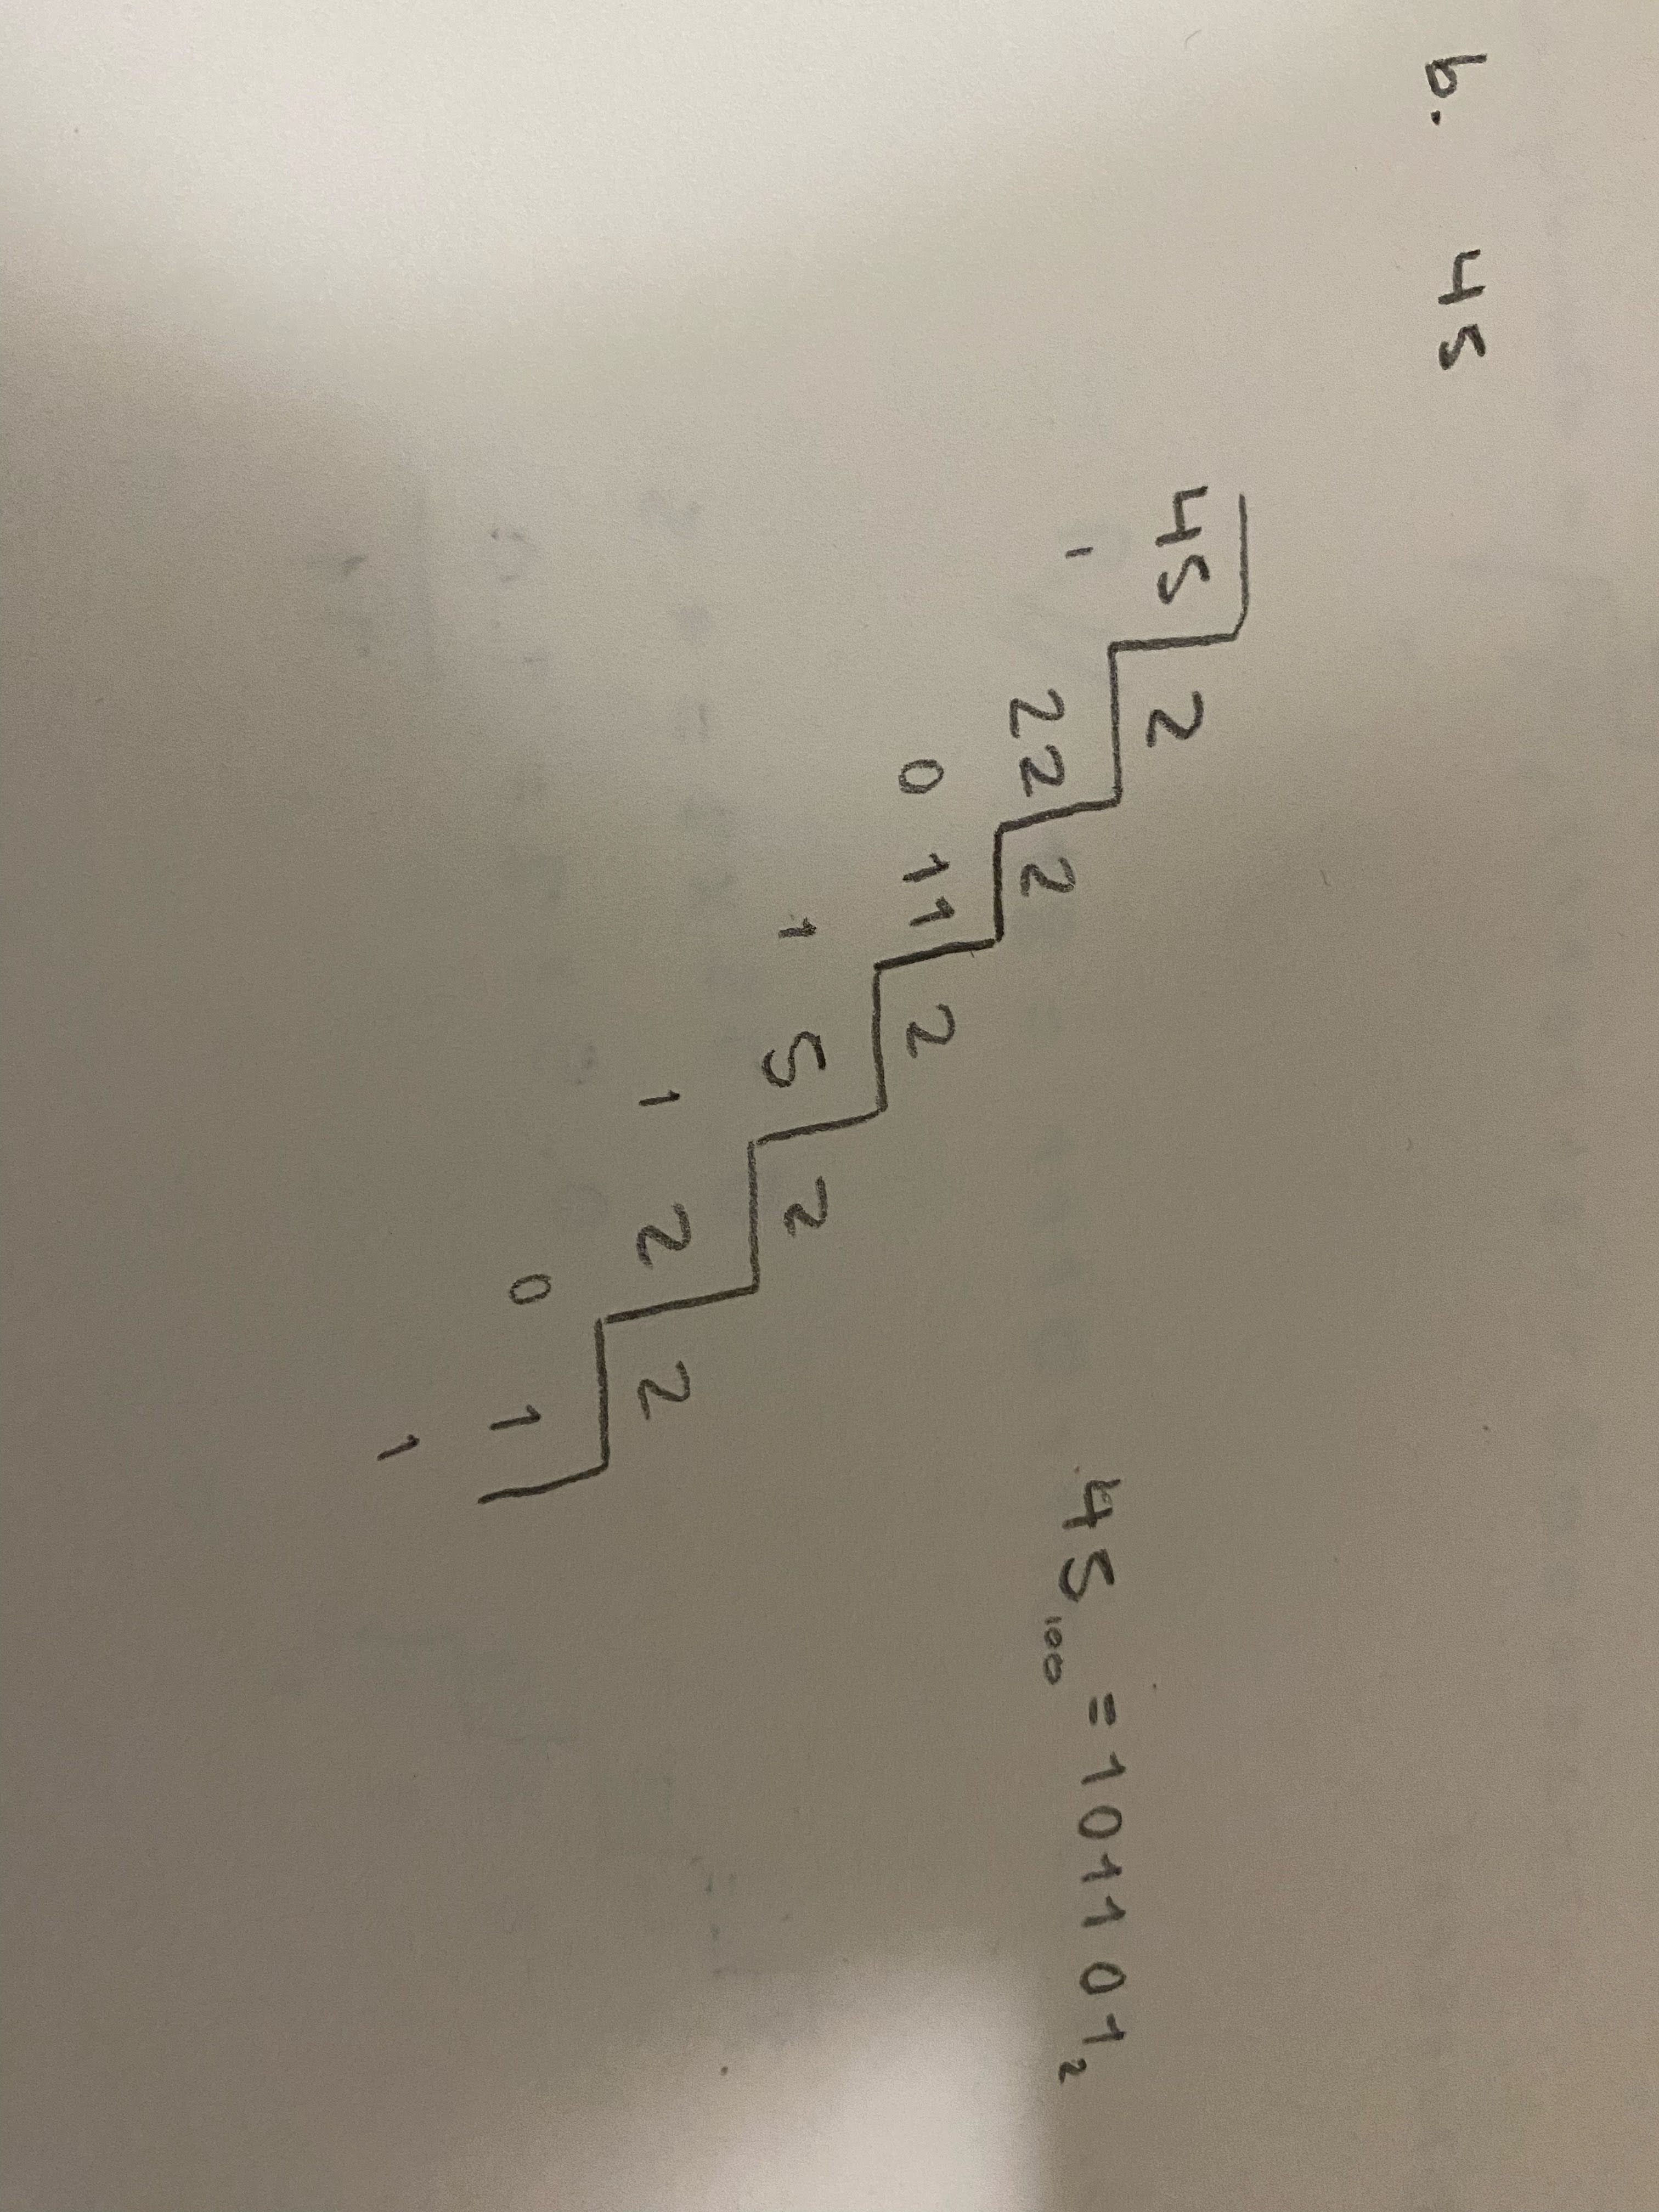 b. 45
45 2
1 22 2
0 11 2
1 5 2
1 2 2
0 1
1
45₁₀₀ = 101101₂